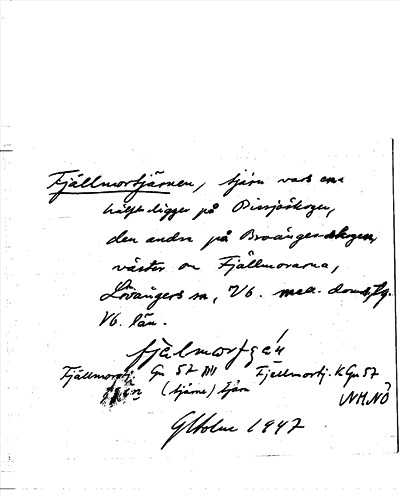 Fjällmortjärnen, tjärn vars ena
hälft ligger på Bissjöskogen,
den andra på Broängerskogen,
väster om Fjällmorarna,
Lövångers sn, Vb. mell. doms,
Vb. län.
Fjällmortj. Gn 57 (tjärne) tjärn Fjellmortj. K Gn 57
GHolm 1947